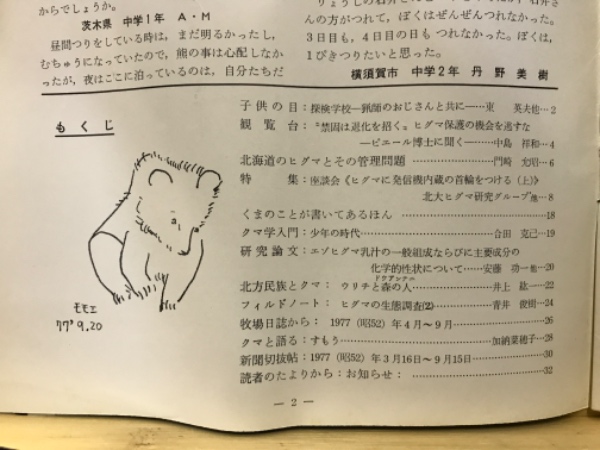 からでしょうか。
茨木県 中学1年 A・M
昼間つりをしている時は、まだ明るかったし、
むちゅうになっていたので、熊の事は心配しなか
ったが、夜はここに泊っているのは、自分たちだ
んの方がつれて、ぼくはぜんぜんつれなかった。
3日目も、4日目の日も つれなかった。ぼくは、
1ぴきつりたいと思った。
横須賀市 中学2年 丹野美樹
もくじ
モモエ
77'9.20
子供の目：探検学校―猟師のおじさんと共に―…東 英夫他…2
観覧台：〝禁因は退化を招く〟ヒグマ保護の機会を逃すな
―ピエール博士に聞く―………中島 祥和…4
北海道のヒグマとその管理問題 …………………門崎 允昭…6
特 集：座談会《ヒグマに発信機内蔵の首輪をつける（上）》
北大ヒグマ研究グループ他…8
くまのことが書いてあるほん …………………………………18
クマ学入門：少年の時代………………………合田 克己…19
研究論文：エゾヒグマ乳汁の一般組成ならびに主要成分の
化学的性状について……安藤 功一他…20
北方民族とクマ： ウリチと森の人………井上 紘一……22
フィールドノート： ヒグマの生態調査(2)…………青井 俊樹…24
牧場日誌から： 1977（昭52）年4月～9月…………………26
クマと語る：すもう………………………………加納菜穂子…28
新聞切抜帖：1977（昭52）年3月16日～9月15日………………30
読者のたよりから：お知らせ： …………………………………32
― 2 ―